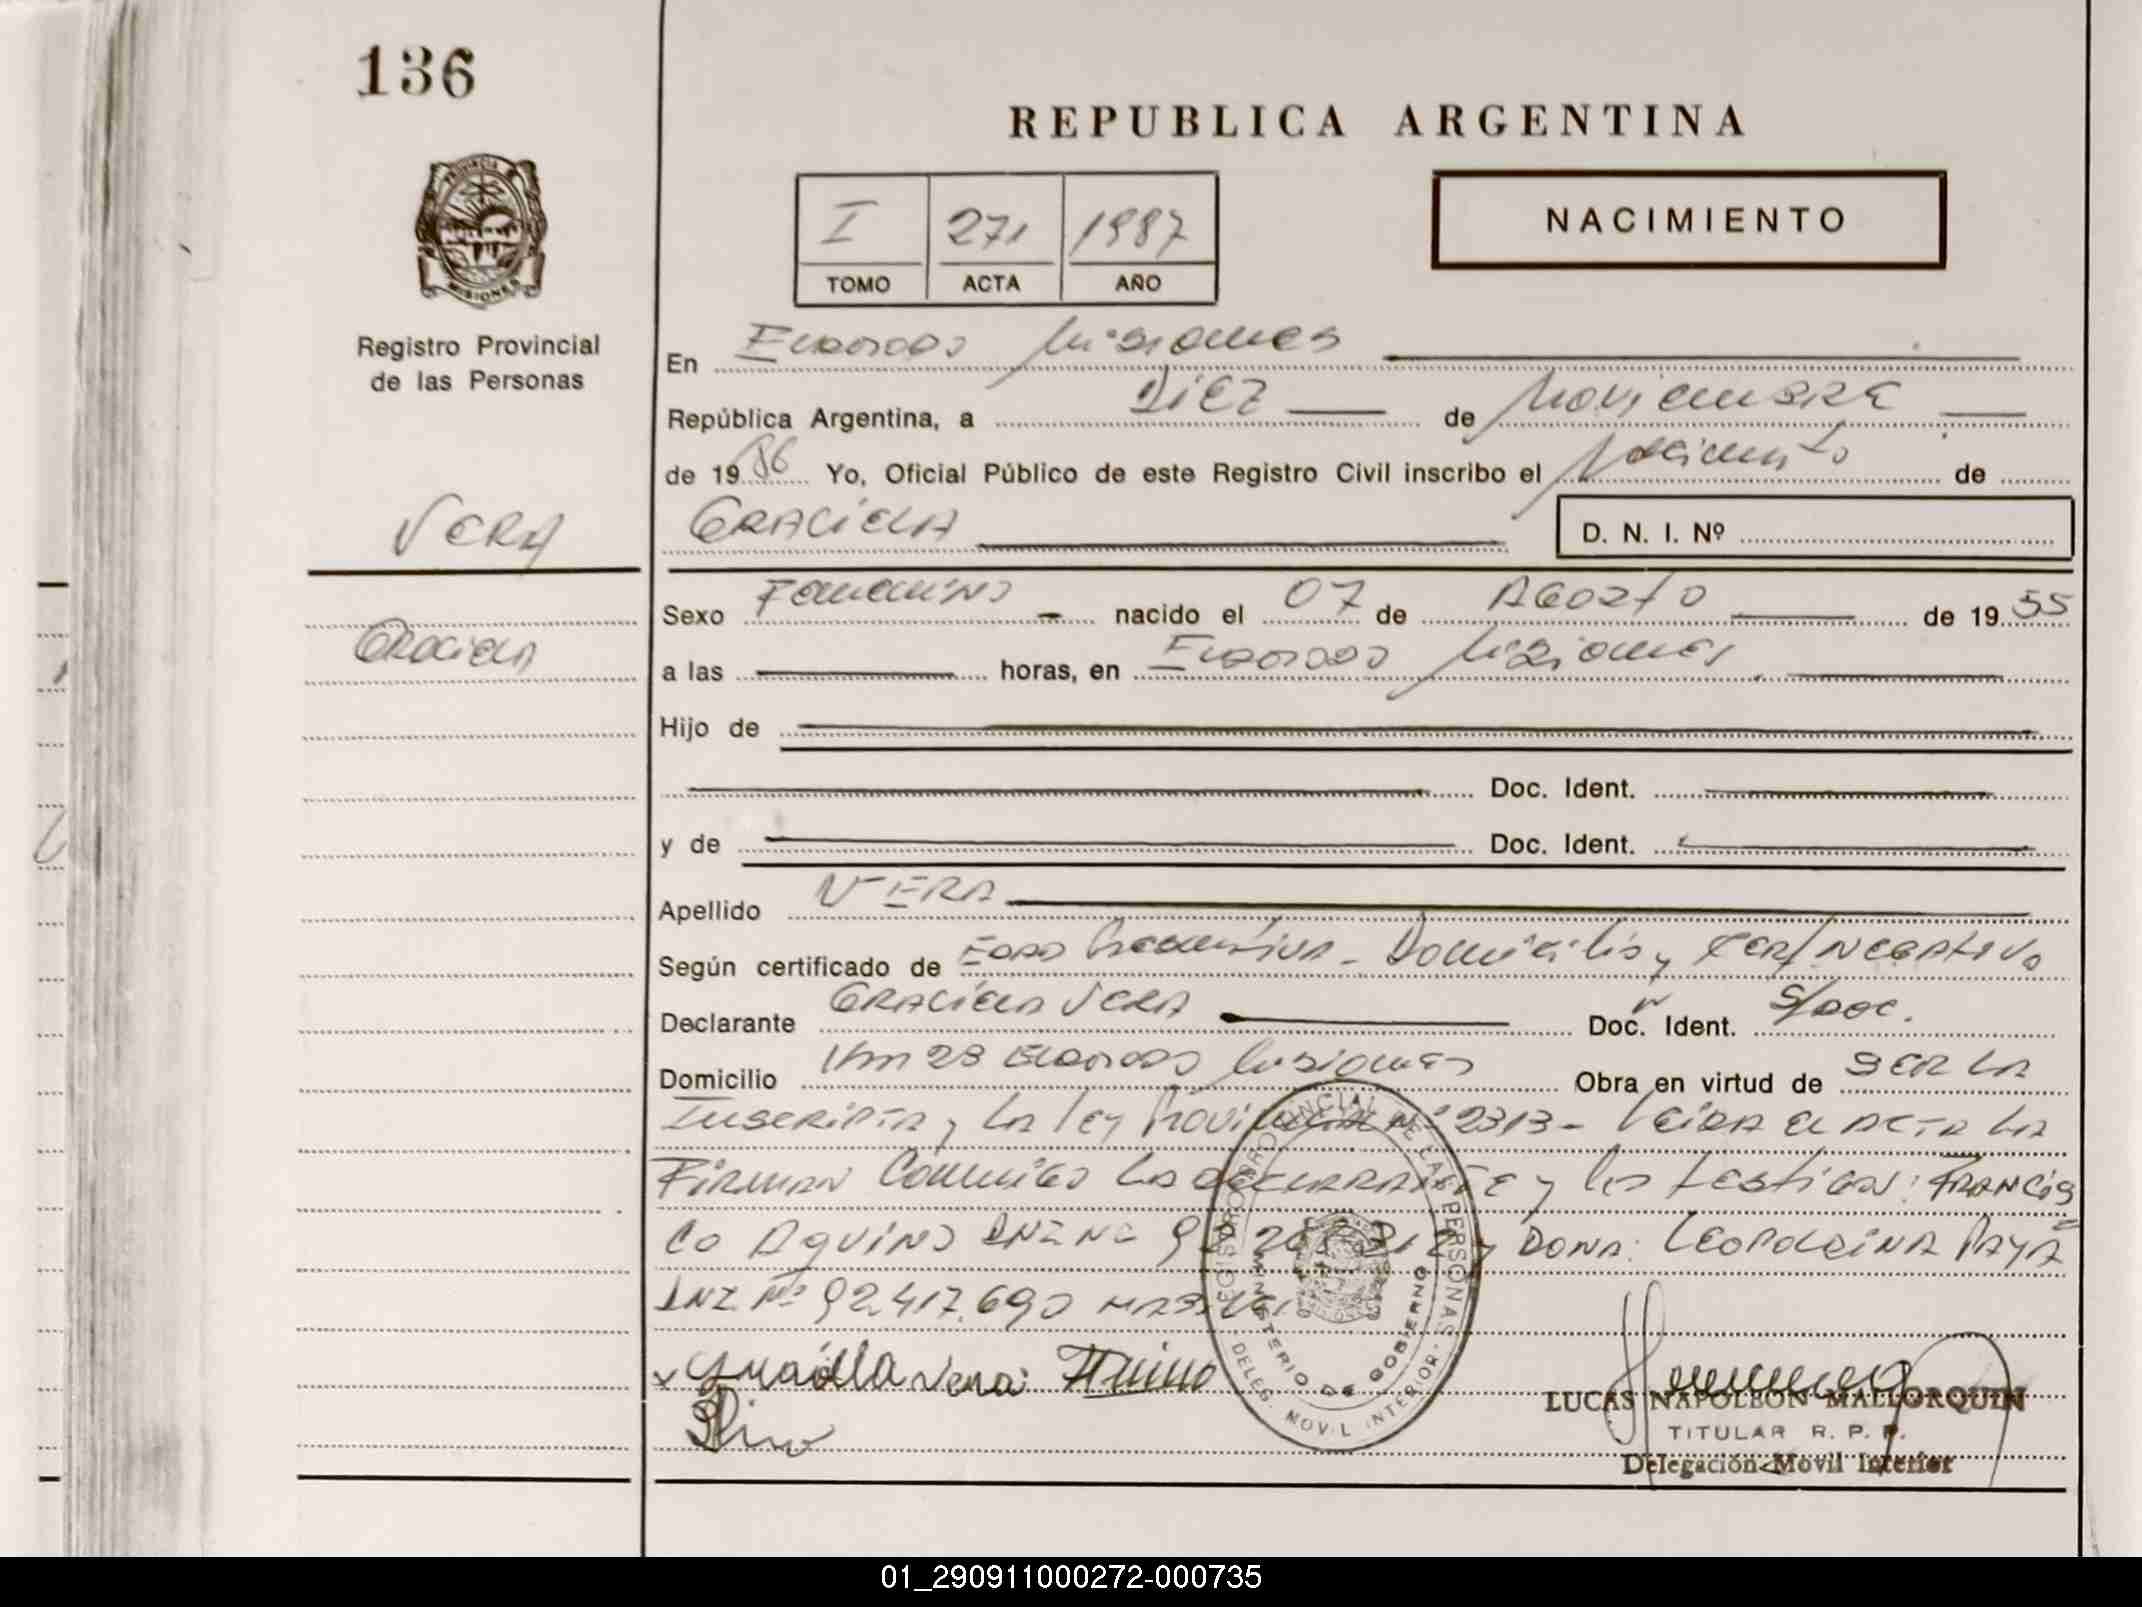 136
REPUBLICA ARGENTINA
PROVINCIA
MISIONES
Registro Provincial
de las Personas
I 271 1987
TOMO ACTA AÑO
NACIMIENTO
En Eldorado Misiones
República Argentina, a DIEZ de Noviembre
de 1986 Yo, Oficial Público de este Registro Civil inscribo el Nacimiento de
VERA
GRACIELA
D. N. I. Nº
Graciela
Sexo Femenino nacido el 07 de AGOSTO de 1955
a las horas, en Eldorado Misiones
Hijo de
Doc. Ident.
y de Doc. Ident.
Apellido VERA
Según certificado de Edad Presuntiva - Domicilio y CERT/NEGATIVO
Declarante GRACIELA VERA Doc. Ident. S/DOC.
Domicilio Km 28 Eldorado Misiones Obra en virtud de SER LA
Inscripta y la ley Provincial Nº 2313 - Leida el ACTA LA
Firman Conmigo la declarante y los testigos: FRANCIS
CO AQUINO DNI Nº y DONA: Leopoldina PAYA
DNI Nº 92.417.690
x Graciella Vera
REGISTRO PROVINCIAL DE LAS PERSONAS
MINISTERIO DE GOBIERNO
DELEG. MOVIL INTERIOR
LUCAS NAPOLEON MALLORQUIN
TITULAR R. P. P.
Delegación Movil Interior
01_290911000272-000735